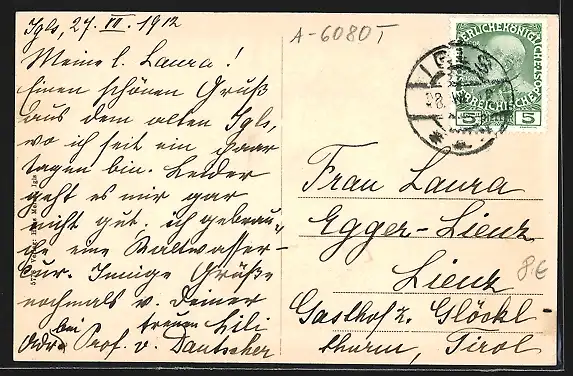 Igls, 27. VII. 1912
Meine l. Laura!
Einen schönen Gruß
aus dem alten Igls,
wo ich seit ein paar
tagen bin. Leider
geht es mir gar
nicht gut. ich gebrau-
che eine Kaltwasser-
cur. Innige Grüße
nochmals v. Deiner
treuen Lili
Adr. bei Prof. v. Dantscher
A-6080T
5
5
Frau Laura
Egger-Lienz
Lienz
Gasthof z. Glöckl-
thurm, Tirol
8€